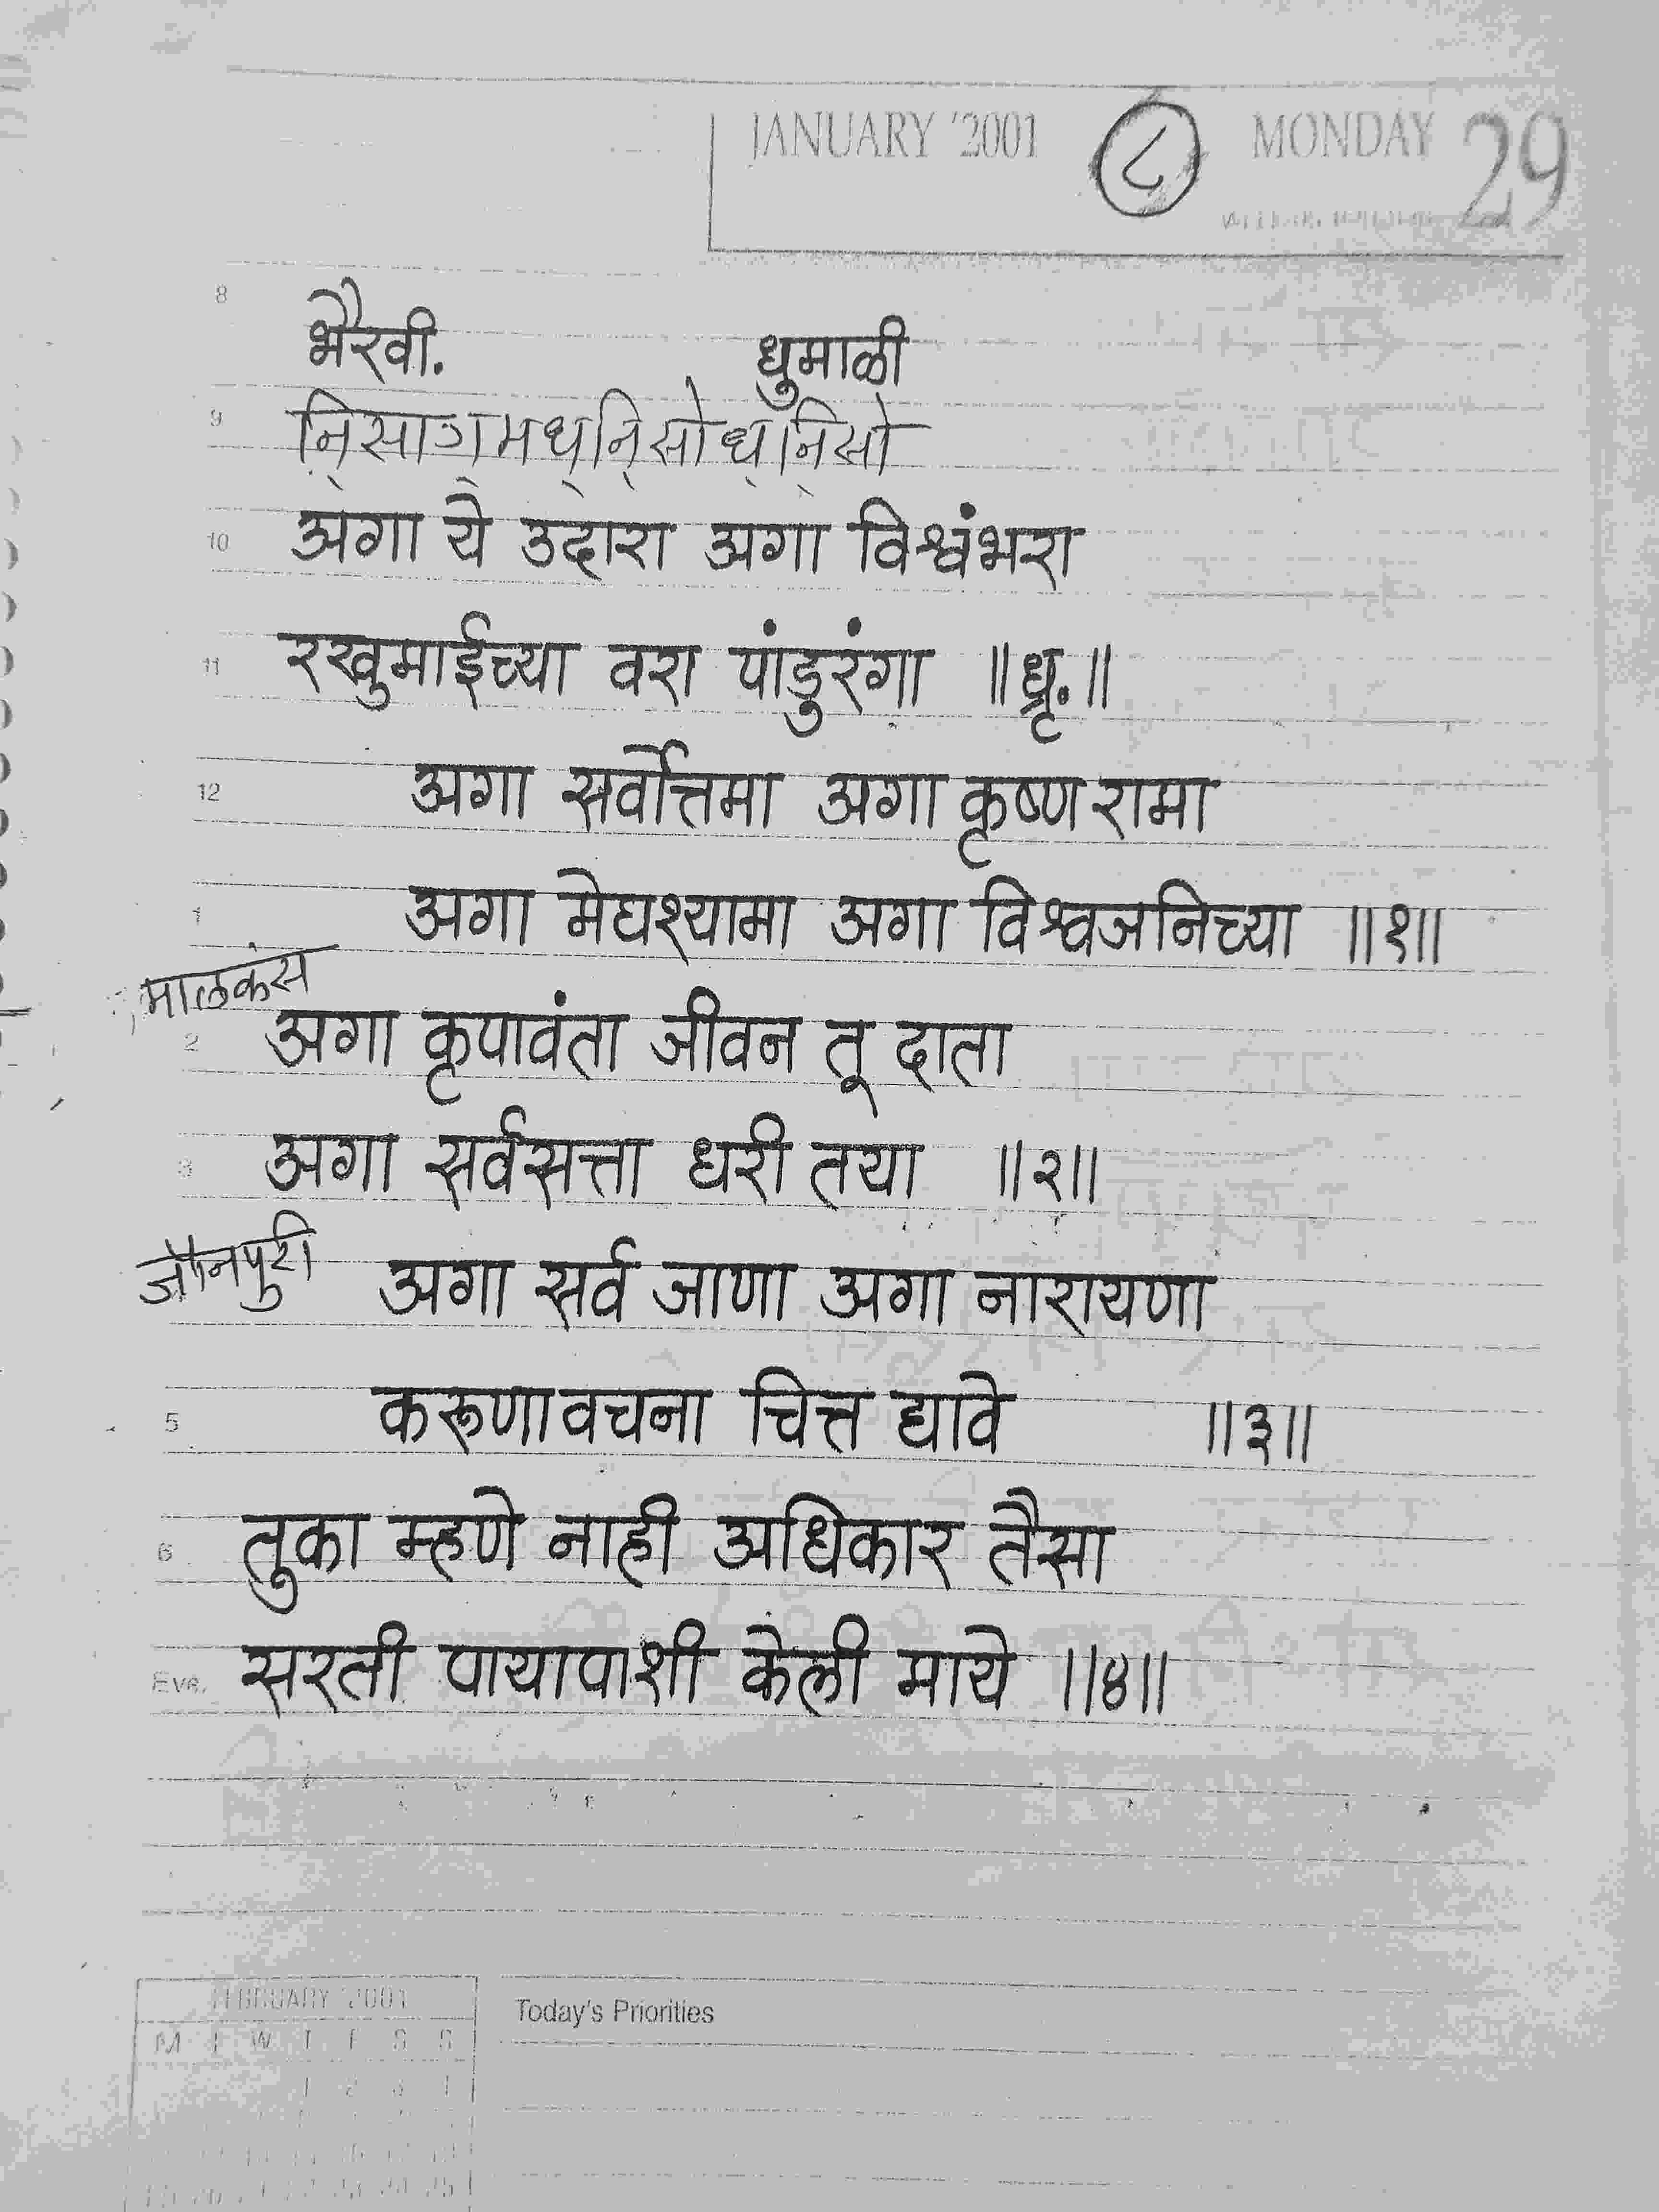 JANUARY '2001 ८ MONDAY 29
8 भैरवी. धुमाळी
9 नि॒साग॒मध॒नि॒सांध॒नि॒सां
10 अगा ये उदारा अगा विश्वंभरा
11 रखुमाईच्या वरा पांडुरंगा ॥ध्रृ.॥
12 अगा सर्वोत्तमा अगा कृष्ण रामा
1 अगा मेघश्यामा अगा विश्वजनिच्या ॥१॥
मालकंस
2 अगा कृपावंता जीवन तू दाता
3 अगा सर्वसत्ता धरी तया ॥२॥
जौनपुरी अगा सर्व जाणा अगा नारायणा
5 करूणावचना चित्त द्यावे ॥३॥
6 तुका म्हणे नाही अधिकार तैसा
Eve. सरती पायापाशी केली माये ॥४॥
FEBRUARY '2001
M T W T F S S
Today's Priorities